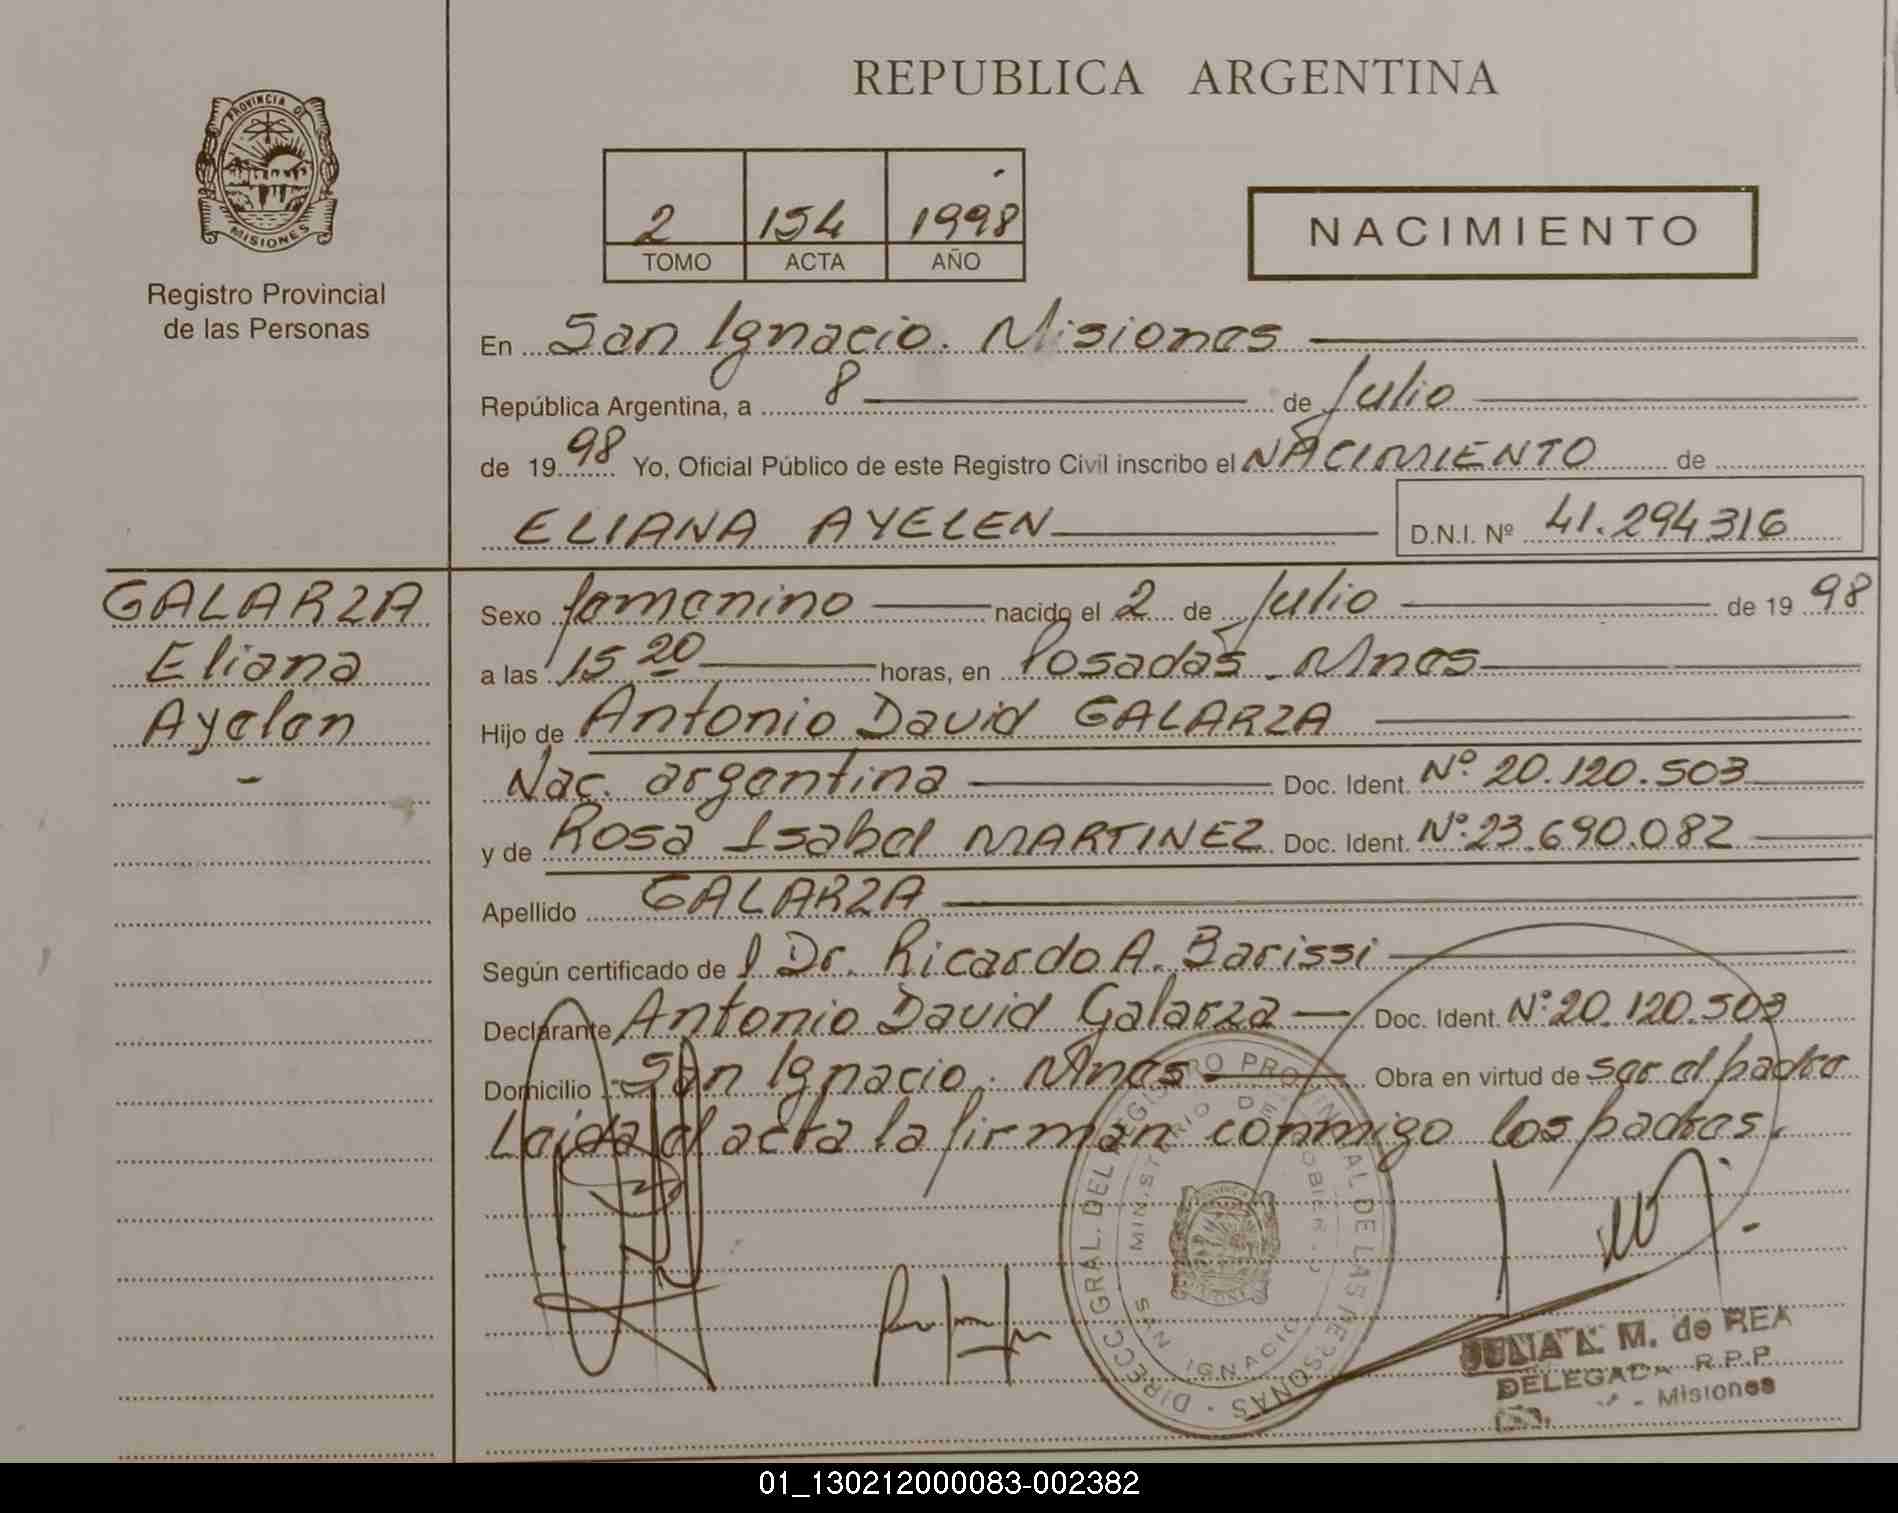 REPUBLICA ARGENTINA
PROVINCIA DE
MISIONES
Registro Provincial
de las Personas
2 154 1998
TOMO ACTA AÑO
NACIMIENTO
En San Ignacio. Misiones
República Argentina, a 8 de Julio
de 1998 Yo, Oficial Público de este Registro Civil inscribo el NACIMIENTO de
ELIANA AYELEN D.N.I. Nº 41.294.316
GALARZA
Eliana
Ayelen
-
Sexo femenino nacido el 2 de Julio de 1998
a las 15 20 horas, en Posadas. Mnes
Hijo de Antonio David GALARZA
Nac. argentina Doc. Ident. Nº 20.120.503
y de Rosa Isabel MARTINEZ Doc. Ident. Nº 23.690.082
Apellido GALARZA
Según certificado del Dr. Ricardo A. Barissi
Declarante Antonio David Galarza Doc. Ident. Nº 20.120.503
Domicilio San Ignacio. Mnes Obra en virtud de ser el padre
Leída el acta la firman conmigo los padres.
DIRECC. GRAL. DEL REGISTRO PROVINCIAL DE LAS PERSONAS
MINISTERIO DE GOBIERNO
SAN IGNACIO
L. M. de REA
DELEGADA R.P.P.
- Misiones
01_130212000083-002382